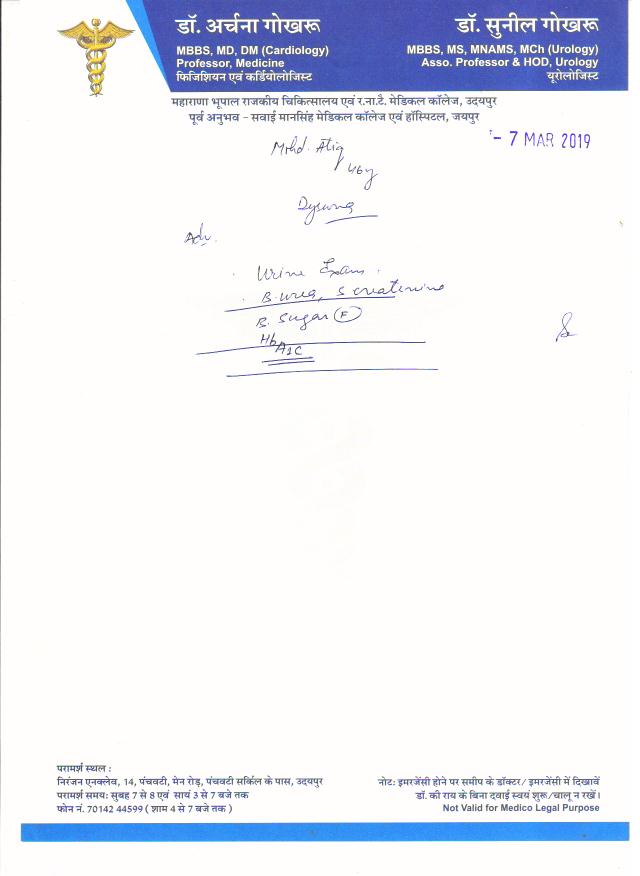 डॉ. अर्चना गोखरू
MBBS, MD, DM (Cardiology)
Professor, Medicine
फिजिशियन एवं कर्डियोलोजिस्ट
डॉ. सुनील गोखरू
MBBS, MS, MNAMS, MCh (Urology)
Asso. Professor & HOD, Urology
यूरोलोजिस्ट
महाराणा भूपाल राजकीय चिकित्सालय एवं र.ना.टै. मेडिकल कॉलेज, उदयपुर
पूर्व अनुभव - सवाई मानसिंह मेडिकल कॉलेज एवं हॉस्पिटल, जयपुर
- 7 MAR 2019
Mohd. Atiq
46y
Adv.
Urine Exam.
B. urea, S creatinine
B. Sugar (F)
HbA1C
परामर्श स्थल :
निरंजन एनक्लेव, 14, पंचवटी, मेन रोड़, पंचवटी सर्किल के पास, उदयपुर
परामर्श समय: सुबह 7 से 8 एवं सायं 3 से 7 बजे तक
फोन नं. 70142 44599 ( शाम 4 से 7 बजे तक )
नोट: इमरजेंसी होने पर समीप के डॉक्टर/ इमरजेंसी में दिखावें
डॉ. की राय के बिना दवाई स्वयं शुरू/चालू न रखें।
Not Valid for Medico Legal Purpose